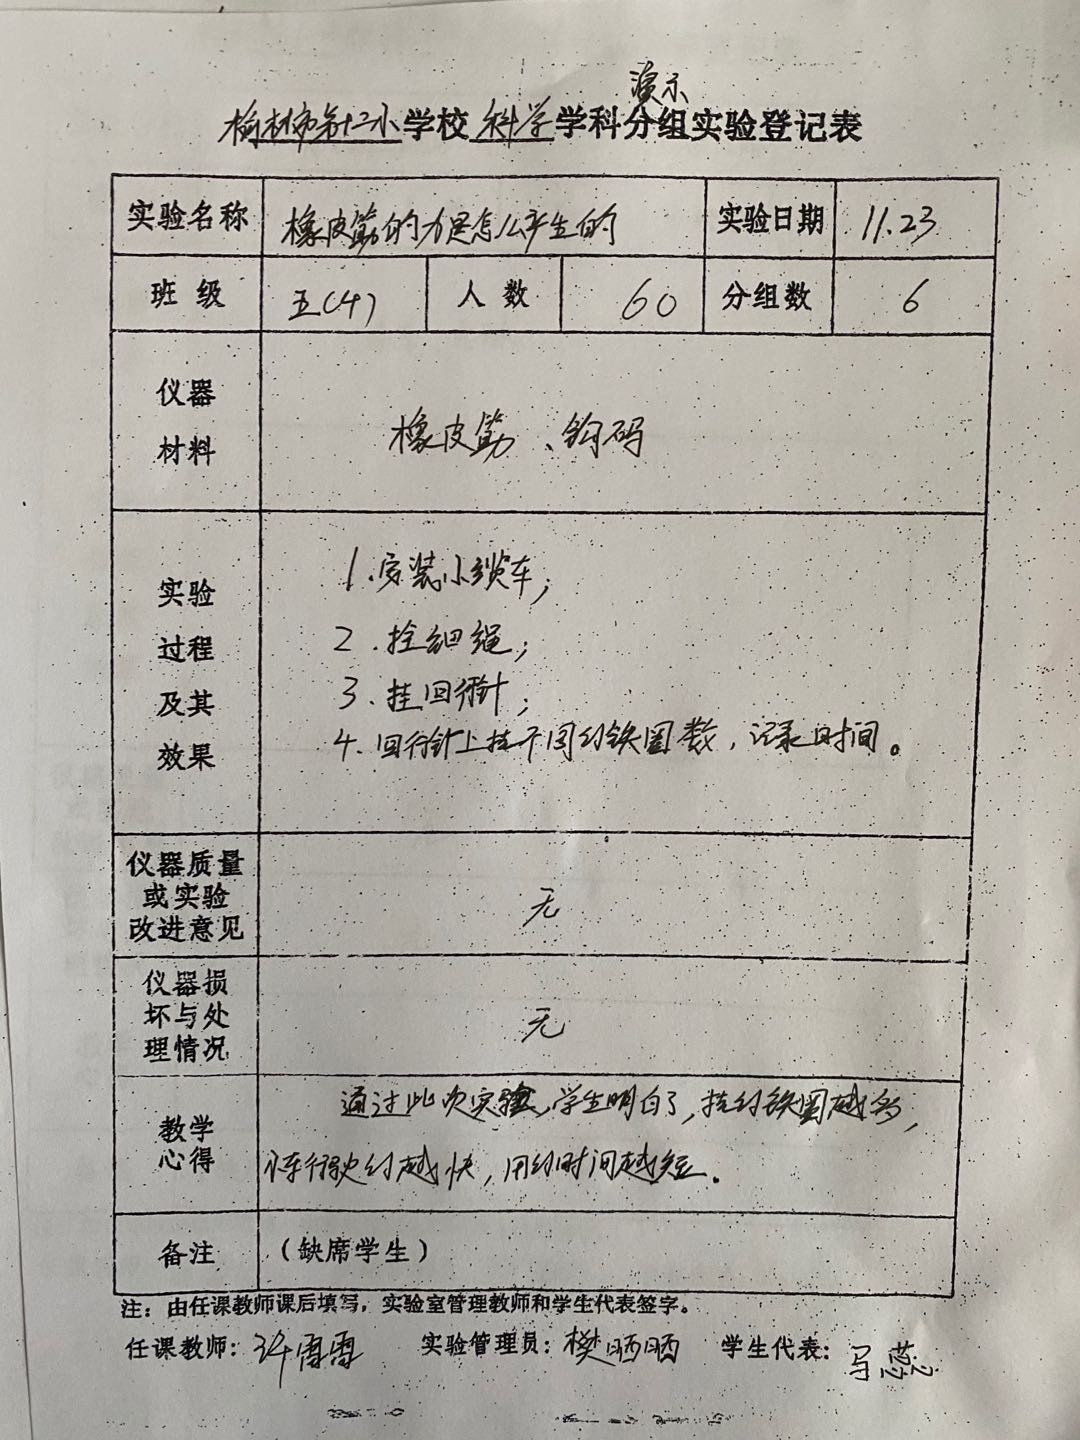 演示
榆林市第十二小学校科学学科分组实验登记表
实验名称 橡皮筋的力是怎么产生的 实验日期 11.23
班级 五(4) 人数 60 分组数 6
仪器
材料
橡皮筋、钩码
实验
过程
及其
效果
1.安装小缆车;
2.拴细绳;
3.挂回行针;
4.回行针上挂不同的铁圈数,记录时间。
仪器质量
或实验
改进意见
无
仪器损
坏与处
理情况
无
教学
心得
通过此次实验,学生明白了,挂的铁圈越多,
车行驶的越快,用的时间越短。
备注 (缺席学生)
注:由任课教师课后填写,实验室管理教师和学生代表签字。
任课教师: 雷雷 实验管理员:樊晒晒 学生代表:马蕊